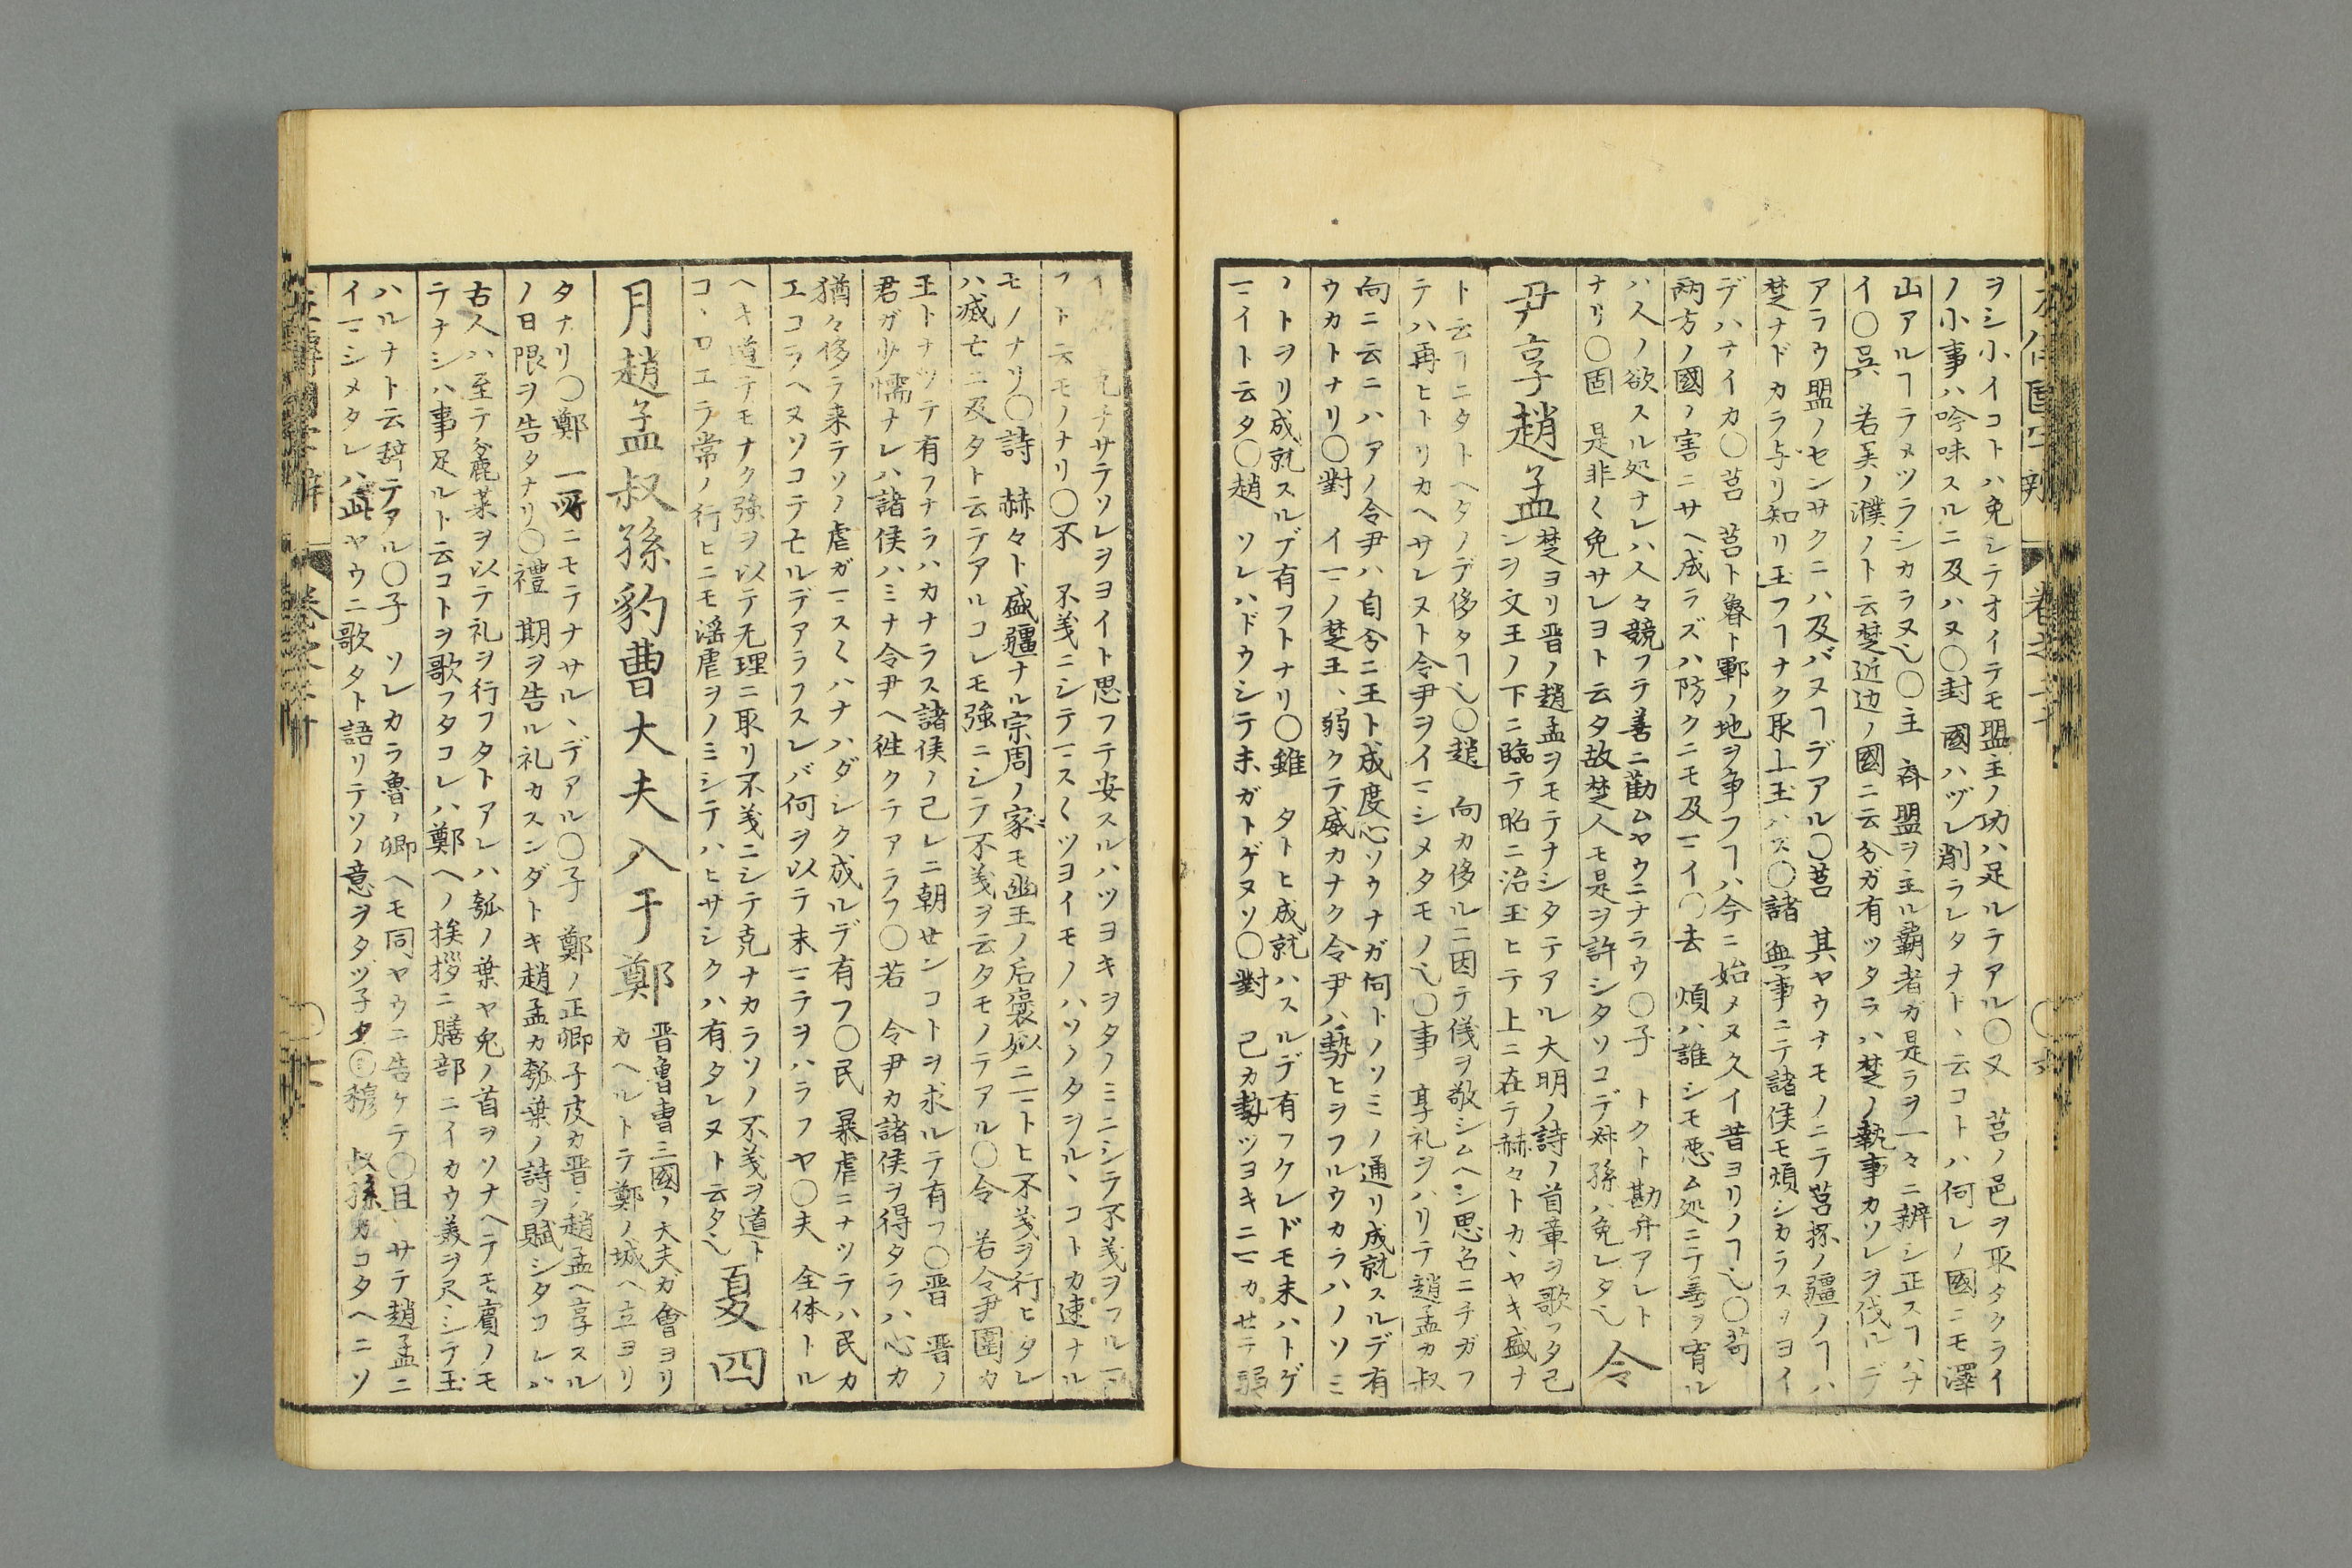 ヲシ小イコトハ免シテオイテモ盟主ノ功ハ足ルテアル〇又 莒ノ邑ヲ取タクライ
ノ小事ハ吟味スルニ及ハヌ〇封 國ハヅレ削ラレタナト、云コトハ何レノ國ニモ澤
山アルヿテメツラシカラヌ也〇主 斉盟ヲ主ル覇者ガ是ラヲ一々ニ辨シ正スヿハナ
イ〇呉 若呉ノ濮ノト云楚近边ノ國ニ云分ガ有ツタラハ楚ノ執事カソレヲ伐ルデ
アラウ盟ノセンサクニハ及バヌヿデアル〇莒 其ヤウナモノニテ莒孫ノ疆ノヿハ
楚ナドカラ与リ知リ玉フヿナク取上玉ハス〇諸 無事ニテ諸侯モ煩シカラスヲヨイ
デハナイカ〇莒 莒ト魯ト鄆ノ地ヲ争フヿハ今ニ始メヌ久イ昔ヨリノヿ也〇苟
両方ノ國ノ害ニサヘ成ラズハ防クニモ及ーイ〇去 煩ハ誰シモ悪ム処ニテ善ヲ宥ル
ハ人ノ欲スル処ナレハ人々競フテ善ニ勸ムヤウニナラウ〇子 トクト勘弁アレト
ナリ〇固 是非〱免サレヨト云タ故楚人モ是ヲ許シタソコデ叔孫ハ免レタ也 令
尹享趙孟 楚ヨリ晋ノ趙孟ヲモテナシタテアル大明ノ詩ノ首章ヲ歌フタ己
レヲ文王ノ下ニ臨テ昭ニ治玉ヒテ上ニ在テ赫々トカ、ヤキ盛ナ
ト云ヿニタトヘタノデ侈タヿ也〇趙 向カ侈ルニ因テ儀ヲ敬シムヘシ思名ニチガフ
テハ再ヒトリカヘサレヌト令尹ヲイーシメタモノ也〇事 享礼ヲハリテ趙孟カ叔
向ニ云ニハアノ令尹ハ自分ニ王ト成度心ソウナガ何トノソミノ通リ成就スルデ有
ウカトナリ〇對 イーノ楚王、弱クテ威カナク令尹ハ勢ヒヲフルウカラハノソミ
ノトヲリ成就スルデ有フトナリ〇雖 タトヒ成就ハスルデ有フケレドモ末ハトゲ
ーイト云タ〇趙 ソレハドウシテ末ガトゲヌソ〇對 己カ勢ツヨキニーカセテ弱
克チサラソレヲヨイト思フテ安スルハツヨキヲタノミニシテ不義ヲフル
フト云モノナリ〇不 不義ニシテース〱ツヨイモノハソノタヲル、コトカ速ナル
モノナリ〇詩 赫々ト盛疆ナル宗周ノ家モ幽王ノ后褒姒ニートヒ不義ヲ行ヒタレ
ハ滅亡ニ及タト云テアルコレモ強ニシテ不義ヲ云タモノテアル〇令 若令尹圍カ
王トナツテ有フナラハカナラス諸侯ノ己レニ朝センコトヲ求ルテ有フ〇晋 晋ノ
君ガ少懦ナレハ諸侯ハミナ令尹ヘ徃クテアラフ〇若 令尹カ諸侯ヲ得タラハ心カ
猶々侈ラ来テソノ虐ガース〱ハナハダシク成ルデ有フ〇民 暴虐ニナツラハ民カ
エコラヘヌソコテ亡ルデアラフスレバ何ヲ以テ末ーテヲハラフヤ〇夫 全体トル
ヘキ道テモナク強ヲ以テ无理ニ取リ不義ニシテ克ナカラソノ不義ヲ道ト
コ、ロエラ常ノ行ヒニモ滛虐ヲノミシテハヒサシクハ有タレヌト云タ也 夏四
月趙孟叔孫豹曹大夫入于鄭 晋魯曹三國ノ大夫ガ會ヨリ
カヘルトテ鄭ノ城ヘ立ヨリ
タナリ〇鄭 一所ニモテナサル、デアル〇子 鄭ノ正卿子皮カ晋ノ趙孟ヘ享スル
ノ日限ヲ告タナリ〇禮 期ヲ告ル礼カスンダトキ趙孟カ瓠葉ノ詩ヲ賦シタコレハ
古人ハ至テ麁菜ヲ以テ礼ヲ行フタトアレハ瓠ノ葉ヤ兔ノ首ヲソナヘテモ賓ノモ
テナシハ事足ルト云コトヲ歌フタコレハ鄭ヘノ挨拶ニ膳部ニイカウ美ヲ尽シテ玉
ハルナト云辞テアル〇子 ソレカラ魯ノ卿ヘモ同ヤウニ告ケテ〇且 サテ趙孟ニ
イーシメタレハ此ヤウニ歌タト語リテソノ意ヲタツ子タ〇穆 叔孫カコタヘニソ